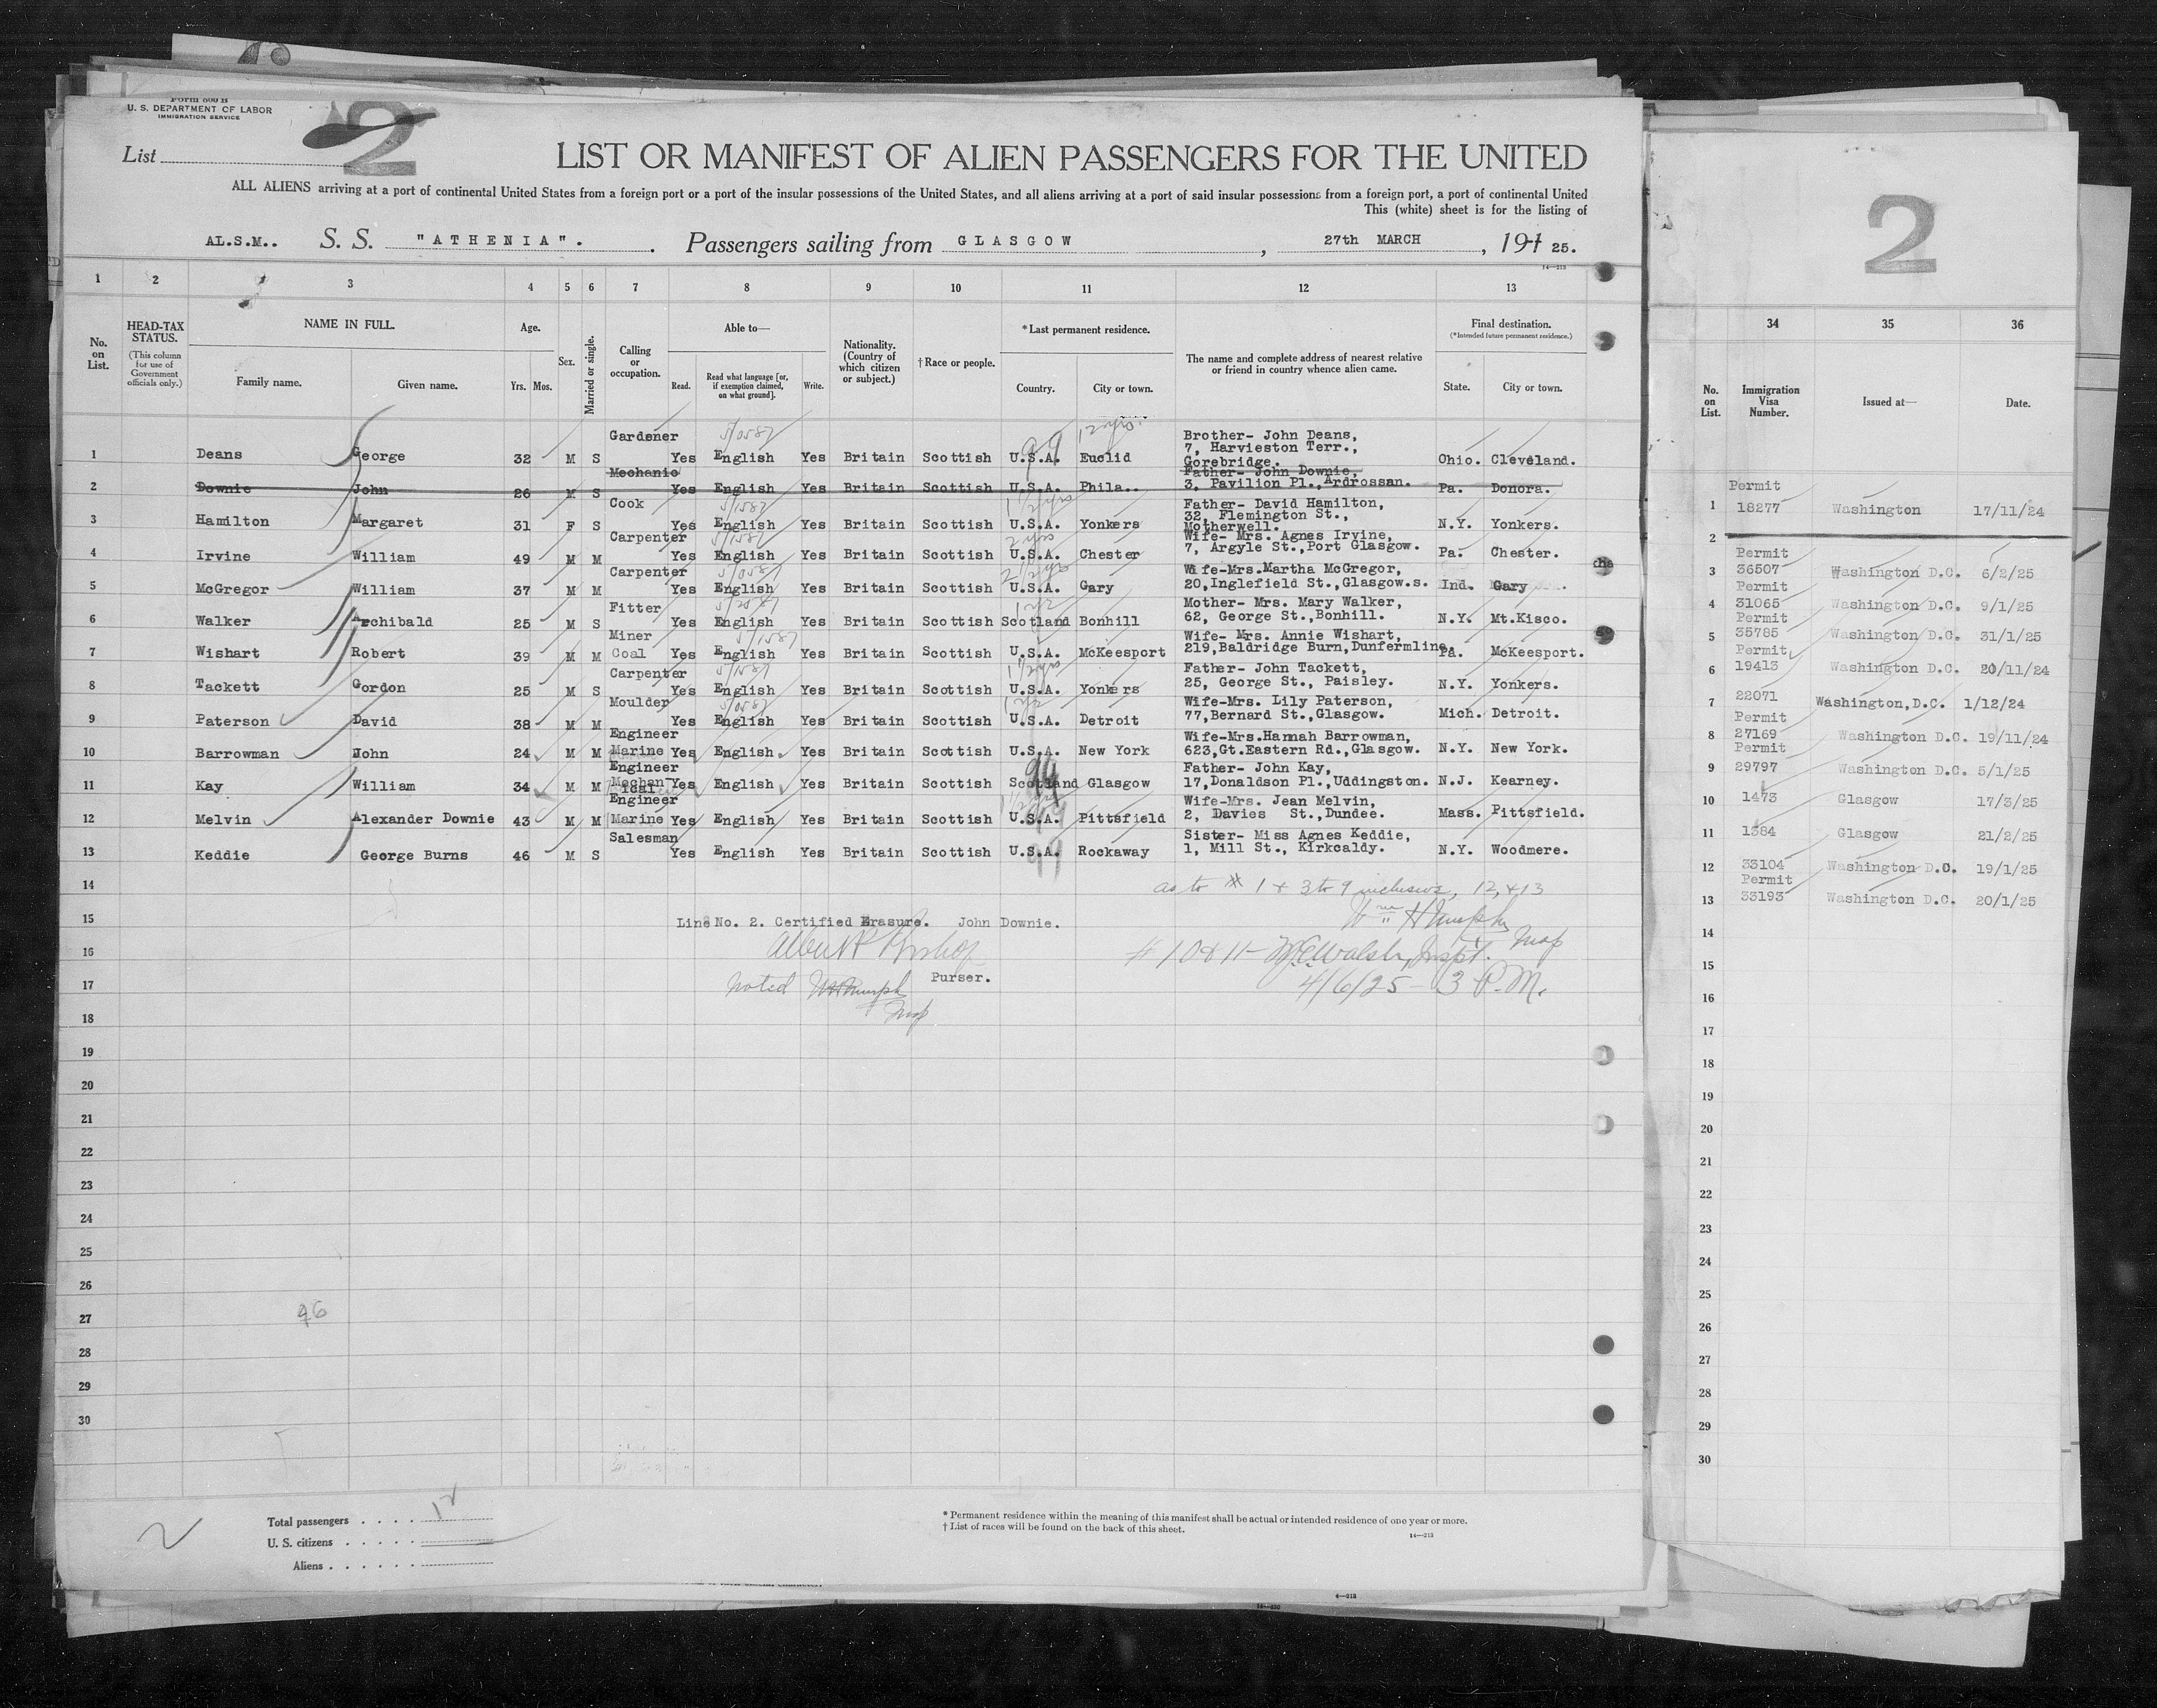 Form 500 B
U. S. DEPARTMENT OF LABOR
IMMIGRATION SERVICE
2
List
LIST OR MANIFEST OF ALIEN PASSENGERS FOR THE UNITED
ALL ALIENS arriving at a port of continental United States from a foreign port or a port of the insular possessions of the United States, and all aliens arriving at a port of said insular possessions from a foreign port, a port of continental United
This (white) sheet is for the listing of
AL.S.M.. S. S. "ATHENIA". Passengers sailing from GLASGOW, 27th MARCH, 191 25.
14—213
1 2 3 4 5 6 7 8 9 10 11 12 13
No. on List.
HEAD-TAX STATUS.
(This column for use of Government officials only.)
NAME IN FULL.
Family name. Given name.
Age.
Yrs. Mos.
Sex.
Married or single.
Calling or occupation.
Able to—
Read. Read what language [or, if exemption claimed, on what ground]. Write.
Nationality. (Country of which citizen or subject.)
†Race or people.
*Last permanent residence.
Country. City or town.
The name and complete address of nearest relative or friend in country whence alien came.
Final destination.
(*Intended future permanent residence.)
State. City or town.
1 Deans George 32 M S Gardener Yes English Yes Britain Scottish U.S.A. Euclid Brother- John Deans, 7, Harvieston Terr., Gorebridge. Ohio. Cleveland.
2 Downie John 26 M S Mechanic Yes English Yes Britain Scottish U.S.A. Phila.. Father- John Downie, 3, Pavilion Pl., Ardrossan. Pa. Donora.
3 Hamilton Margaret 31 F S Cook Yes English Yes Britain Scottish U.S.A. Yonkers Father- David Hamilton, 32, Flemington St., Motherwell. N.Y. Yonkers.
4 Irvine William 49 M M Carpenter Yes English Yes Britain Scottish U.S.A. Chester Wife- Mrs. Agnes Irvine, 7, Argyle St.,Port Glasgow. Pa. Chester.
5 McGregor William 37 M M Carpenter Yes English Yes Britain Scottish U.S.A. Gary Wife-Mrs.Martha McGregor, 20,Inglefield St.,Glasgow.s. Ind. Gary
6 Walker Archibald 25 M S Fitter Yes English Yes Britain Scottish Scotland Bonhill Mother- Mrs. Mary Walker, 62, George St.,Bonhill. N.Y. Mt.Kisco.
7 Wishart Robert 39 M M Miner Coal Yes English Yes Britain Scottish U.S.A. McKeesport Wife- Mrs. Annie Wishart, 219,Baldridge Burn,Dunfermline. Pa. McKeesport.
8 Tackett Gordon 25 M S Carpenter Yes English Yes Britain Scottish U.S.A. Yonkers Father- John Tackett, 25, George St., Paisley. N.Y. Yonkers.
9 Paterson David 38 M M Moulder Yes English Yes Britain Scottish U.S.A. Detroit Wife-Mrs. Lily Paterson, 77,Bernard St.,Glasgow. Mich. Detroit.
10 Barrowman John 24 M M Engineer Marine Yes English Yes Britain Scottish U.S.A. New York Wife-Mrs.Hannah Barrowman, 623,Gt.Eastern Rd.,Glasgow. N.Y. New York.
11 Kay William 34 M M Engineer Mechanical Yes English Yes Britain Scottish Scotland Glasgow Father- John Kay, 17,Donaldson Pl.,Uddingston. N.J. Kearney.
12 Melvin Alexander Downie 43 M M Engineer Marine Yes English Yes Britain Scottish U.S.A. Pittsfield Wife-Mrs. Jean Melvin, 2, Davies St.,Dundee. Mass. Pittsfield.
13 Keddie George Burns 46 M S Salesman Yes English Yes Britain Scottish U.S.A. Rockaway Sister- Miss Agnes Keddie, 1, Mill St., Kirkcaldy. N.Y. Woodmere.
14 as to # 1 + 3 to 9 inclusive, 12, +13
15 Line No. 2. Certified Erasure. John Downie.
16 # 10 & 11 - Walsh, Inspt.
17 noted Purser. 4/6/25 - 3 P.M.
18
19
20
21
22
23
24
25
26
27
28
29
30
Total passengers 12
U. S. citizens
Aliens
2
* Permanent residence within the meaning of this manifest shall be actual or intended residence of one year or more.
† List of races will be found on the back of this sheet.
14—213
2
34 35 36
No. on List.
Immigration Visa Number.
Issued at—
Date.
1 Permit 18277 Washington 17/11/24
2
3 Permit 36507 Washington D.C. 6/2/25
4 Permit 31065 Washington D.C. 9/1/25
5 Permit 35785 Washington D.C. 31/1/25
6 Permit 19413 Washington D.C. 20/11/24
7 22071 Washington,D.C. 1/12/24
8 Permit 27169 Washington D.C. 19/11/24
9 Permit 29797 Washington D.C. 5/1/25
10 1473 Glasgow 17/3/25
11 1384 Glasgow 21/2/25
12 33104 Washington D.C. 19/1/25
13 Permit 33193 Washington D.C. 20/1/25
14
15
16
17
18
19
20
21
22
23
24
25
26
27
28
29
30